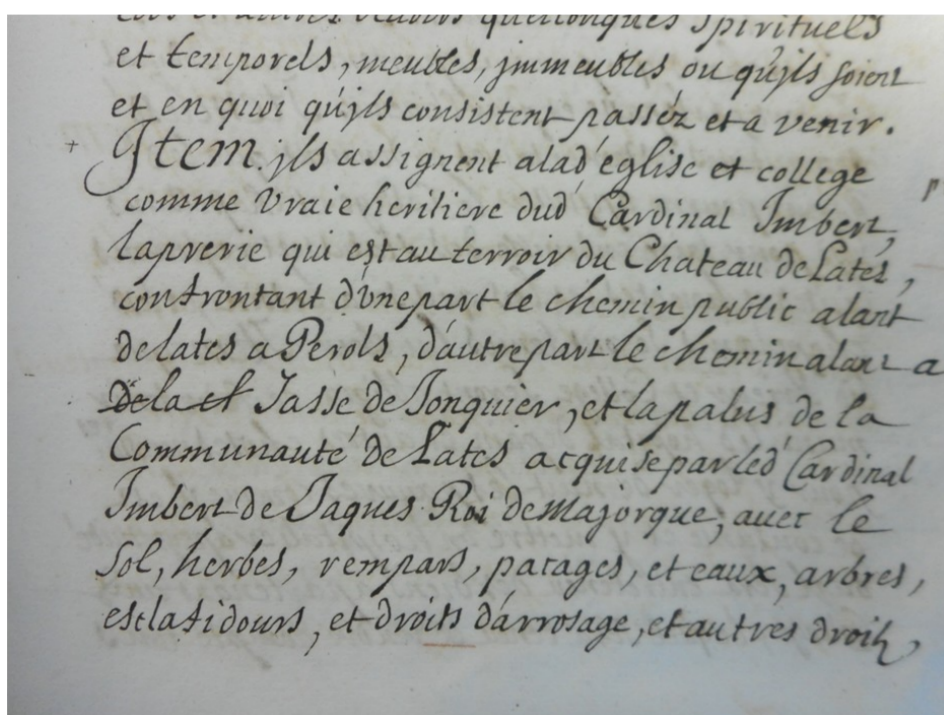 et autres quelconques spirituels
et temporels, meubles, jmmeubles ou qu'jls soient
et en quoi qu'jls consistent passéz et a venir.
+ Jtem jls assignent alad' eglise et college
comme vraie heritiere dud' Cardinal Imbert,
la prerie qui est au terroir du Chateau de Lates,
confrontant d'une part le chemin public alant
de lates a Perols, d'autre part le chemin alant a
la Jasse de Jonquier, et la palus de la
Communauté de Lates acquise par led' Cardinal
Imbert de Jaques Roi de Majorque, avec le
sol, herbes, rempars, patages, et eaux, arbres,
esclasidours, et droits d'arrosage, et autres droits,